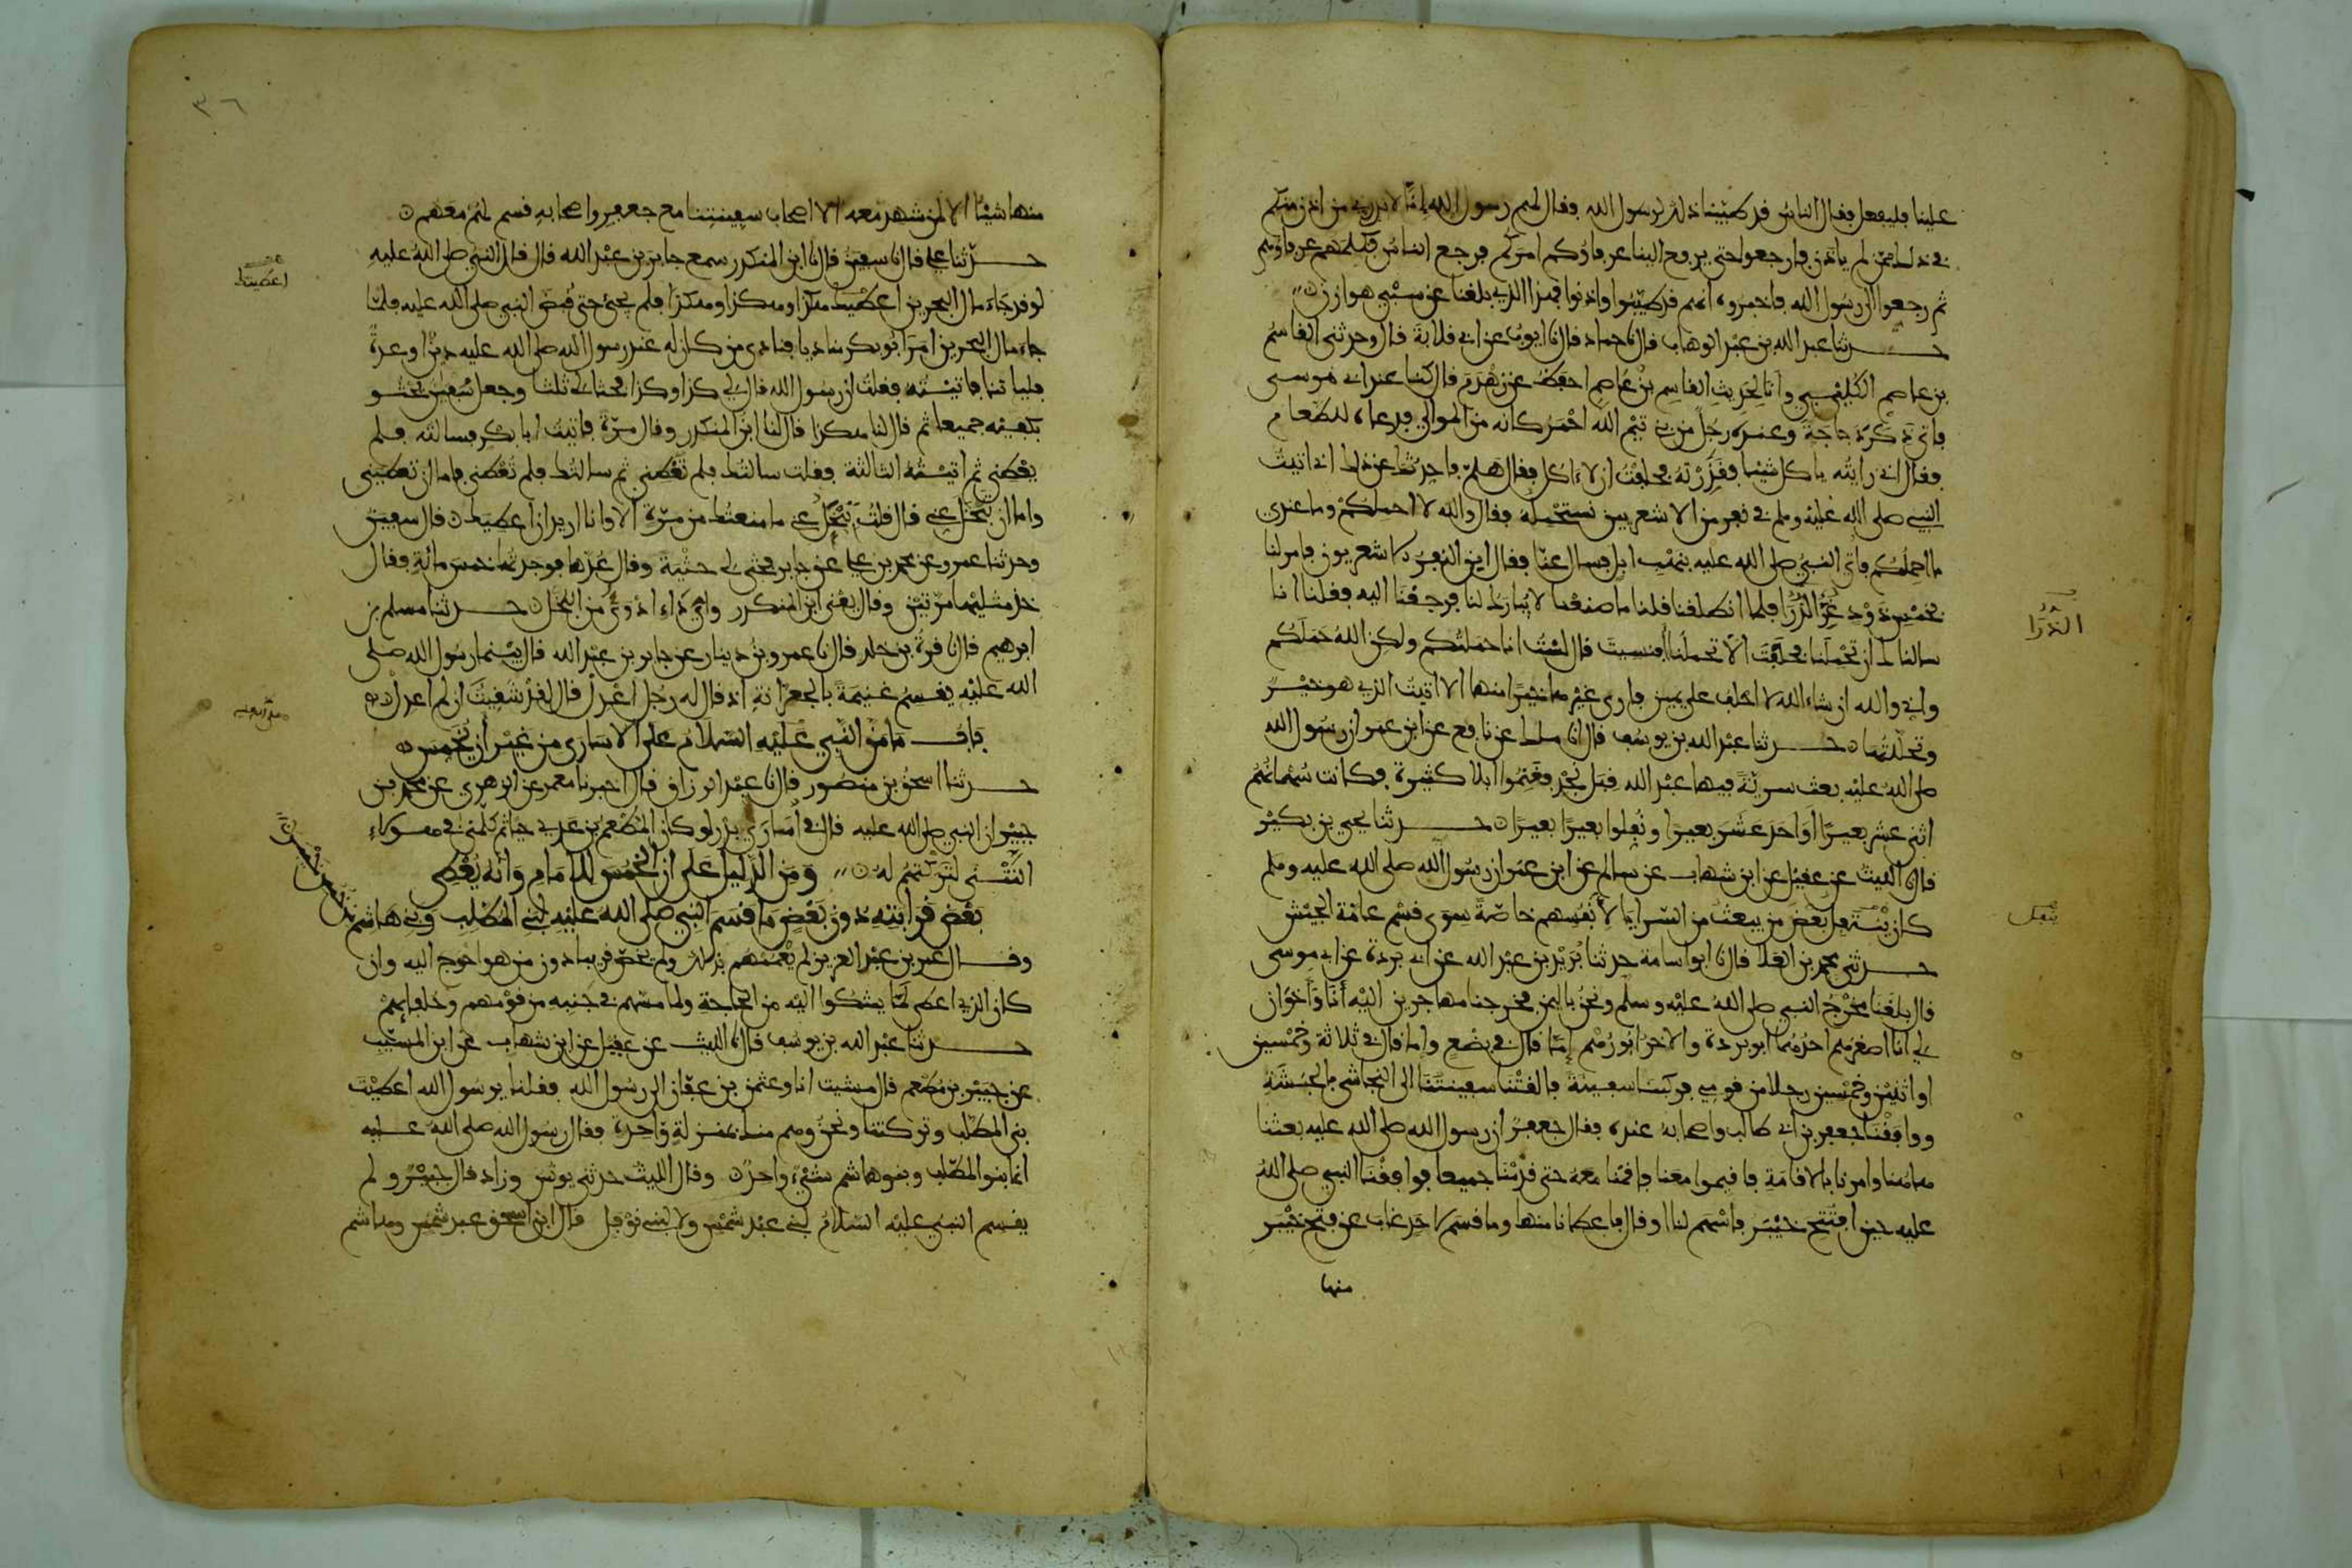 علينا فليفعل فقال الناس قد طيبنا ذلك لرسول الله فقال لهم رسول الله إنا لا ندري من اذن منكم
في ذلك ممن لم ياذن فارجعوا حتى يرفع الينا عرفاؤكم امركم فرجع الناس فكلمهم عرفاؤهم
ثم رجعوا الى رسول الله فاخبروه انهم قد طيبوا واذنوا فهذا الذي بلغنا عن سبي هوازن
حدثنا عبد الله بن عبد الوهاب قال نا حماد قال نا ايوب عن ابي قلابة قال وحدثني القاسم
بن عاصم الكليبي وانا لحديث القاسم بن عاصم احفظ عن زهدم قال كنا عند ابي موسى
فاتي ذكر دجاجة وعنده رجل من بني تيم الله احمر كانه من الموالي فدعاه للطعام
فقال اني رايته ياكل شيئا فقذرته فحلفت ان لا ءاكل فقال هلم فاحدثك عن ذلك اني اتيت
النبي صلى الله عليه وسلم في نفر من الاشعريين نستحمله فقال والله لا احملكم وما عندي
ما احملكم فاتي النبي صلى الله عليه بنهب ابل فسال عنا فقال اين النفر الاشعريون فامر لنا
بخمس ذود غر الذرا فلما انطلقنا قلنا ما صنعنا لا يبارك لنا فرجعنا اليه فقلنا انا
سالناك ان تحملنا فحلفت الا تحملنا أفنسيت قال لست انا حملتكم ولكن الله حملكم
واني والله ان شاء الله لا احلف على يمين فارى غيرها خيرا منها الا اتيت الذي هو خير
وتحللتها حدثنا عبد الله بن يوسف قال انا ملك عن نافع عن ابن عمر ان رسول الله
صلى الله عليه بعث سرية فيها عبد الله قبل نجد فغنموا ابلا كثيرة فكانت سهمانهم
اثني عشر بعيرا أو احد عشر بعيرا ونفلوا بعيرا بعيرا حدثنا يحيى بن بكير
قال نا الليث عن عقيل عن ابن شهاب عن سالم عن ابن عمر ان رسول الله صلى الله عليه وسلم
كان ينفل بعض من يبعث من السرايا لأنفسهم خاصة سوى قسم عامة الجيش
حدثني محمد بن العلا قال نا ابو اسامة حدثنا بريد بن عبد الله عن ابي بردة عن ابي موسى
قال بلغنا مخرج النبي صلى الله عليه وسلم ونحن باليمن فخرجنا مهاجرين اليه أنا وأخوان
لي انا اصغرهم احدهما ابو بردة والاخر ابو رهم إما قال في بضع واما قال في ثلاثة وخمسين
او اثنين وخمسين رجلا من قومي فركبنا سفينة فالقتنا سفينتنا الى النجاشي بالحبشة
ووافقنا جعفر بن ابي طالب واصحابه عنده فقال جعفر ان رسول الله صلى الله عليه بعثنا
هاهنا وامرنا بالاقامة فاقيموا معنا فاقمنا معه حتى قدمنا جميعا فوافقنا النبي صلى الله
عليه حين افتتح خيبر فاسهم لنا او قال فاعطانا منها وما قسم لاحد غاب عن فتح خيبر
منها
الذرا
ينفل
٣٦
منها شيئا الا لمن شهد معه الا اصحاب سفينتنا مع جعفر واصحابه قسم لهم معهم
حدثنا علي قال نا سفين قال نا ابن المنكدر سمع جابر بن عبد الله قال قال النبي صلى الله عليه
لو قد جاء مال البحرين اعطيتك هكذا وهكذا وهكذا فلم يجئ حتى قبض النبي صلى الله عليه فلما
جاء مال البحرين امر ابو بكر مناديا فنادى من كان له عند رسول الله صلى الله عليه دين او عدة
فلياتنا فاتيته فقلت ان رسول الله قال لي كذا وكذا فحثا لي ثلثا وجعل سفين يحثو
بكفيه جميعا ثم قال لنا هكذا قال لنا ابن المنكدر وقال مرة فاتيت ابا بكر فسالته فلم
يعطني ثم اتيته الثالثة فقلت سالتك فلم تعطني ثم سالتك فلم تعطني فاما ان تعطيني
واما ان تبخل عني قال قلت تبخل عني ما منعتك من مرة الا وانا اريد ان اعطيك قال سفين
وحدثنا عمرو عن محمد بن علي عن جابر فحثى لي حثية وقال عدها فوجدتها خمس مائة فقال
خذ مثليها مرتين وقال يعني ابن المنكدر واي داء ادوى من البخل حدثنا مسلم بن
ابرهيم قال نا قرة بن خلد قال نا عمرو بن دينار عن جابر بن عبد الله قال بينما رسول الله صلى
الله عليه يقسم غنيمة بالجعرانة اذ قال له رجل اعدل قال لقد شقيت ان لم اعدل
باب ما من النبي عليه السلام على الاسارى من غير أن يخمس
حدثنا اسحق بن منصور قال نا عبد الرزاق قال اخبرنا معمر عن الزهري عن محمد بن
جبير ان النبي صلى الله عليه قال في أسارى بدر لو كان المطعم بن عدي حيا ثم كلمني في هؤلاء
النتنى لتركتهم له ومن الدليل على ان الخمس للامام وانه يعطي
بعض قرابته دون بعض ما قسم النبي صلى الله عليه لبني المطلب وبني هاشم
وقال عمر بن عبد العزيز لم يعمهم بذلك ولم يخص قريبا دون من هو احوج اليه وان
كان الذي اعطى لما يشكوا اليه من الحاجة ولما مستهم في جنبه من قومهم وحلفائهم
حدثنا عبد الله بن يوسف قال نا الليث عن عقيل عن ابن شهاب عن ابن المسيب
عن جبير بن مطعم قال مشيت انا وعثمن بن عفان الى رسول الله فقلنا يرسول الله اعطيت
بني المطلب وتركتنا ونحن وهم منك بمنزلة واحدة فقال رسول الله صلى الله عليه
انما بنو المطلب وبنو هاشم شيء واحد وقال الليث حدثني يونس وزاد قال جبير ولم
يقسم النبي عليه السلام لبني عبد شمس ولا لبني نوفل قال ابن اسحق عبد شمس وهاشم
اعطيتك